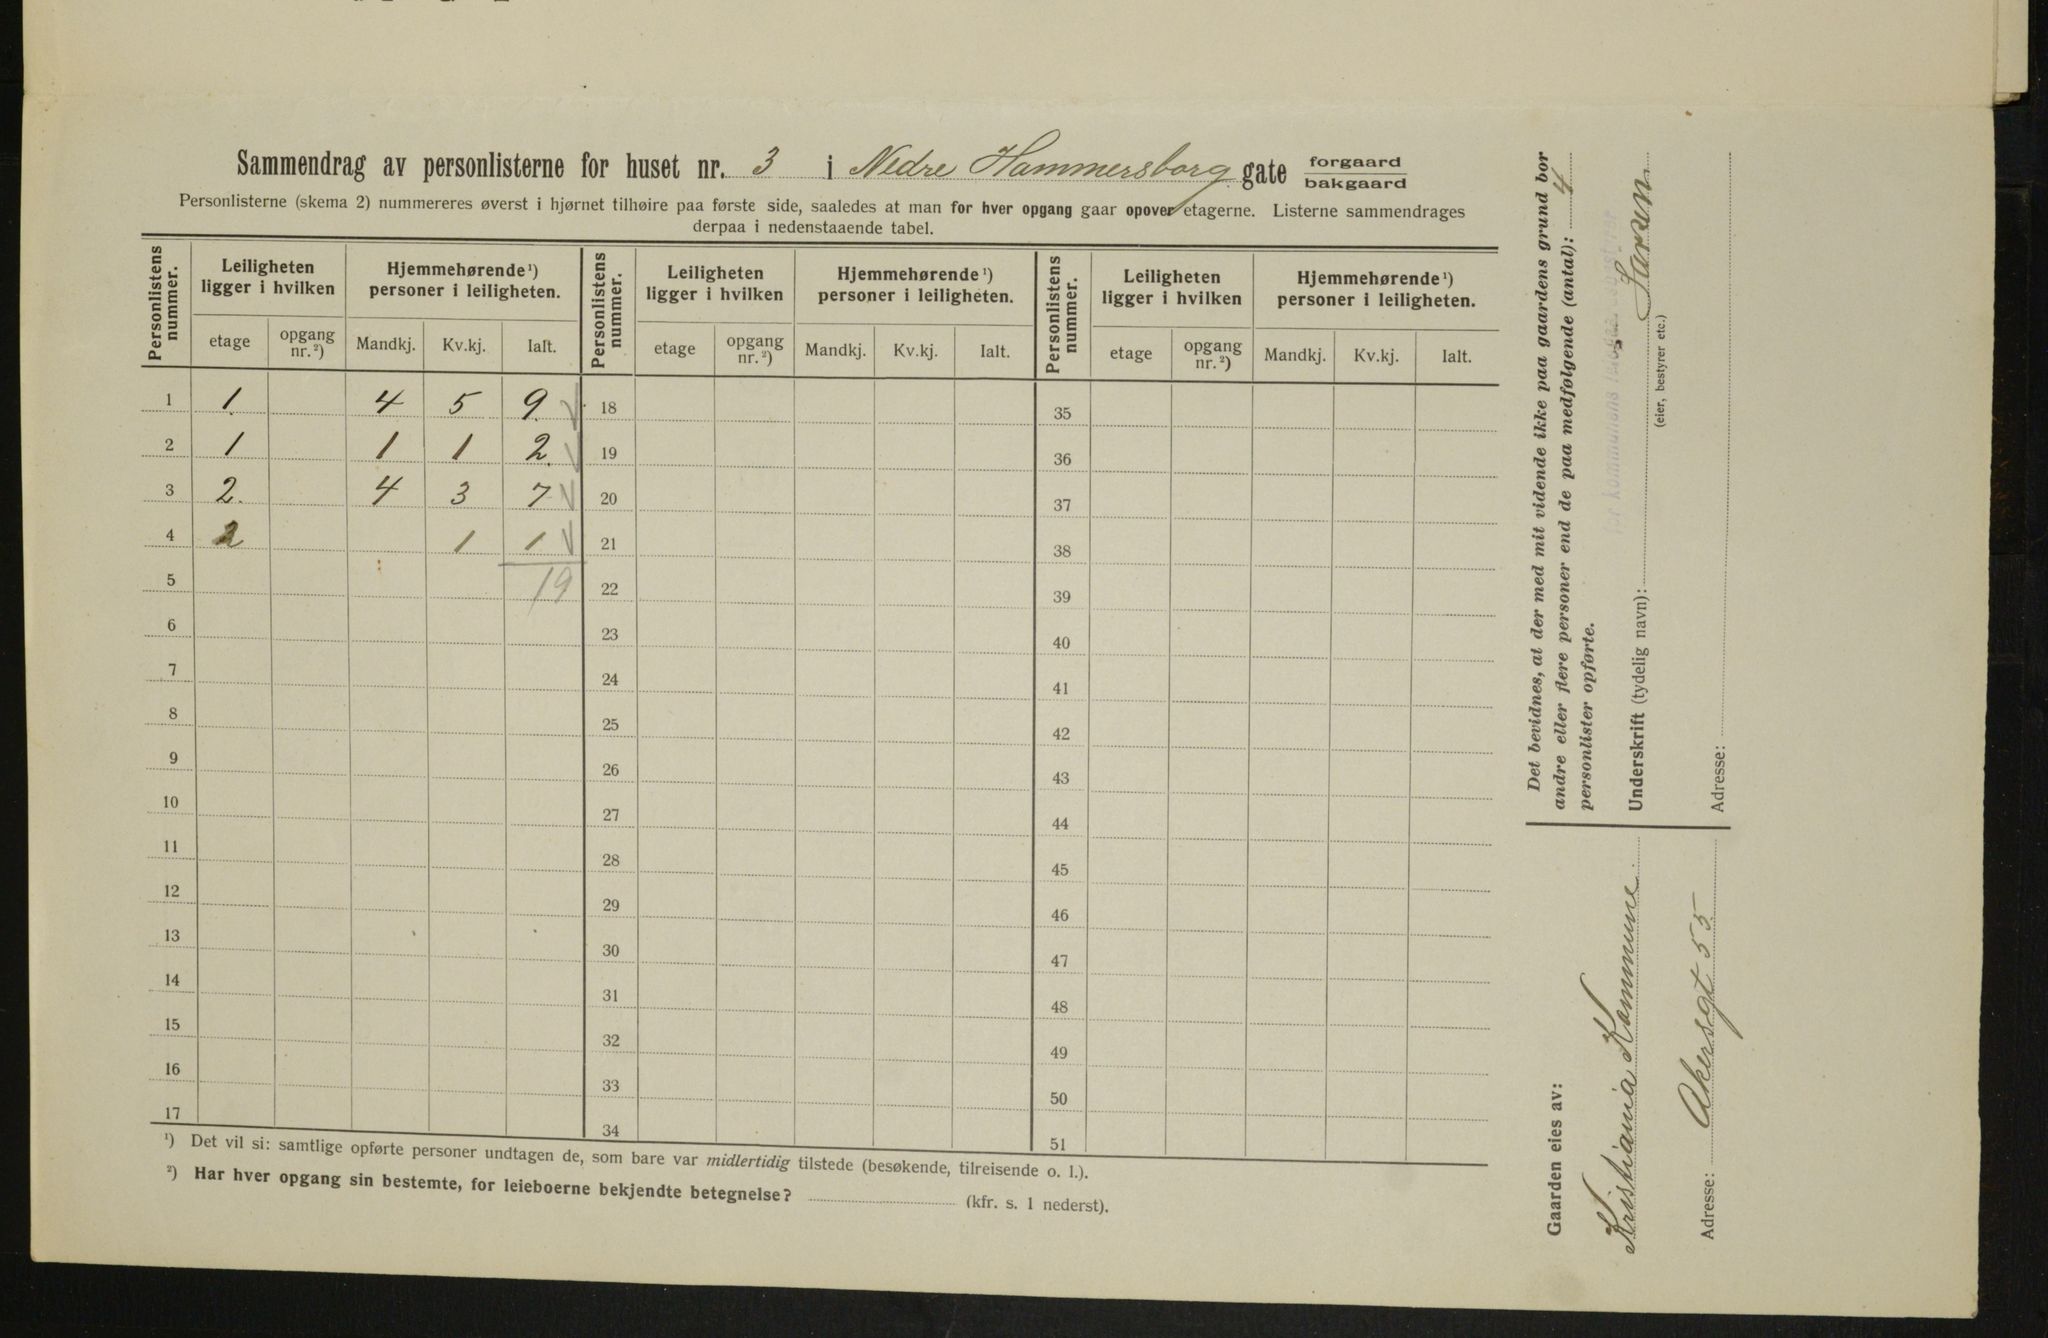 Sammendrag av personlisterne for huset nr. 3 i Nedre Hammersborg gate forgaard bakgaard
Personlisterne (skema 2) nummereres øverst i hjørnet tilhøire paa første side, saaledes at man for hver opgang gaar opover etagerne. Listerne sammendrages
derpaa i nedenstaaende tabel.
Personlistens nummer. Leiligheten ligger i hvilken Hjemmehørende ¹) personer i leiligheten. Personlistens nummer. Leiligheten ligger i hvilken Hjemmehørende ¹) personer i leiligheten. Personlistens nummer. Leiligheten ligger i hvilken Hjemmehørende ¹) personer i leiligheten.
etage opgang nr. ²) Mandkj. Kv.kj. Ialt. etage opgang nr. ²) Mandkj. Kv.kj. Ialt. etage opgang nr. ²) Mandkj. Kv.kj. Ialt.
1 1. 4 5 9. 18 35
2 1 1 1 2. 19 36
3 2. 4 3 7 20 37
4 2 1 1 21 38
5 19 22 39
6 23 40
7 24 41
8 25 42
9 26 43
10 27 44
11 28 45
12 29 46
13 30 47
14 31 48
15 32 49
16 33 50
17 34 51
¹) Det vil si: samtlige opførte personer undtagen de, som bare var midlertidig tilstede (besøkende, tilreisende o. l.).
²) Har hver opgang sin bestemte, for leieboerne bekjendte betegnelse? (kfr. s. 1 nederst).
Det bevidnes, at der med mit vidende ikke paa gaardens grund bor
andre eller flere personer end de paa medfølgende (antal): 4
personlister opførte.
Underskrift (tydelig navn): Larsen
(eier, bestyrer etc.)
Adresse:
Gaarden eies av:
Kristiania Kommune
Adresse: Akersgt 55